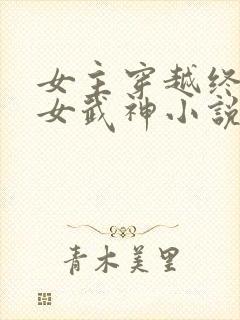 女主穿越终
女武神小説
青木美里